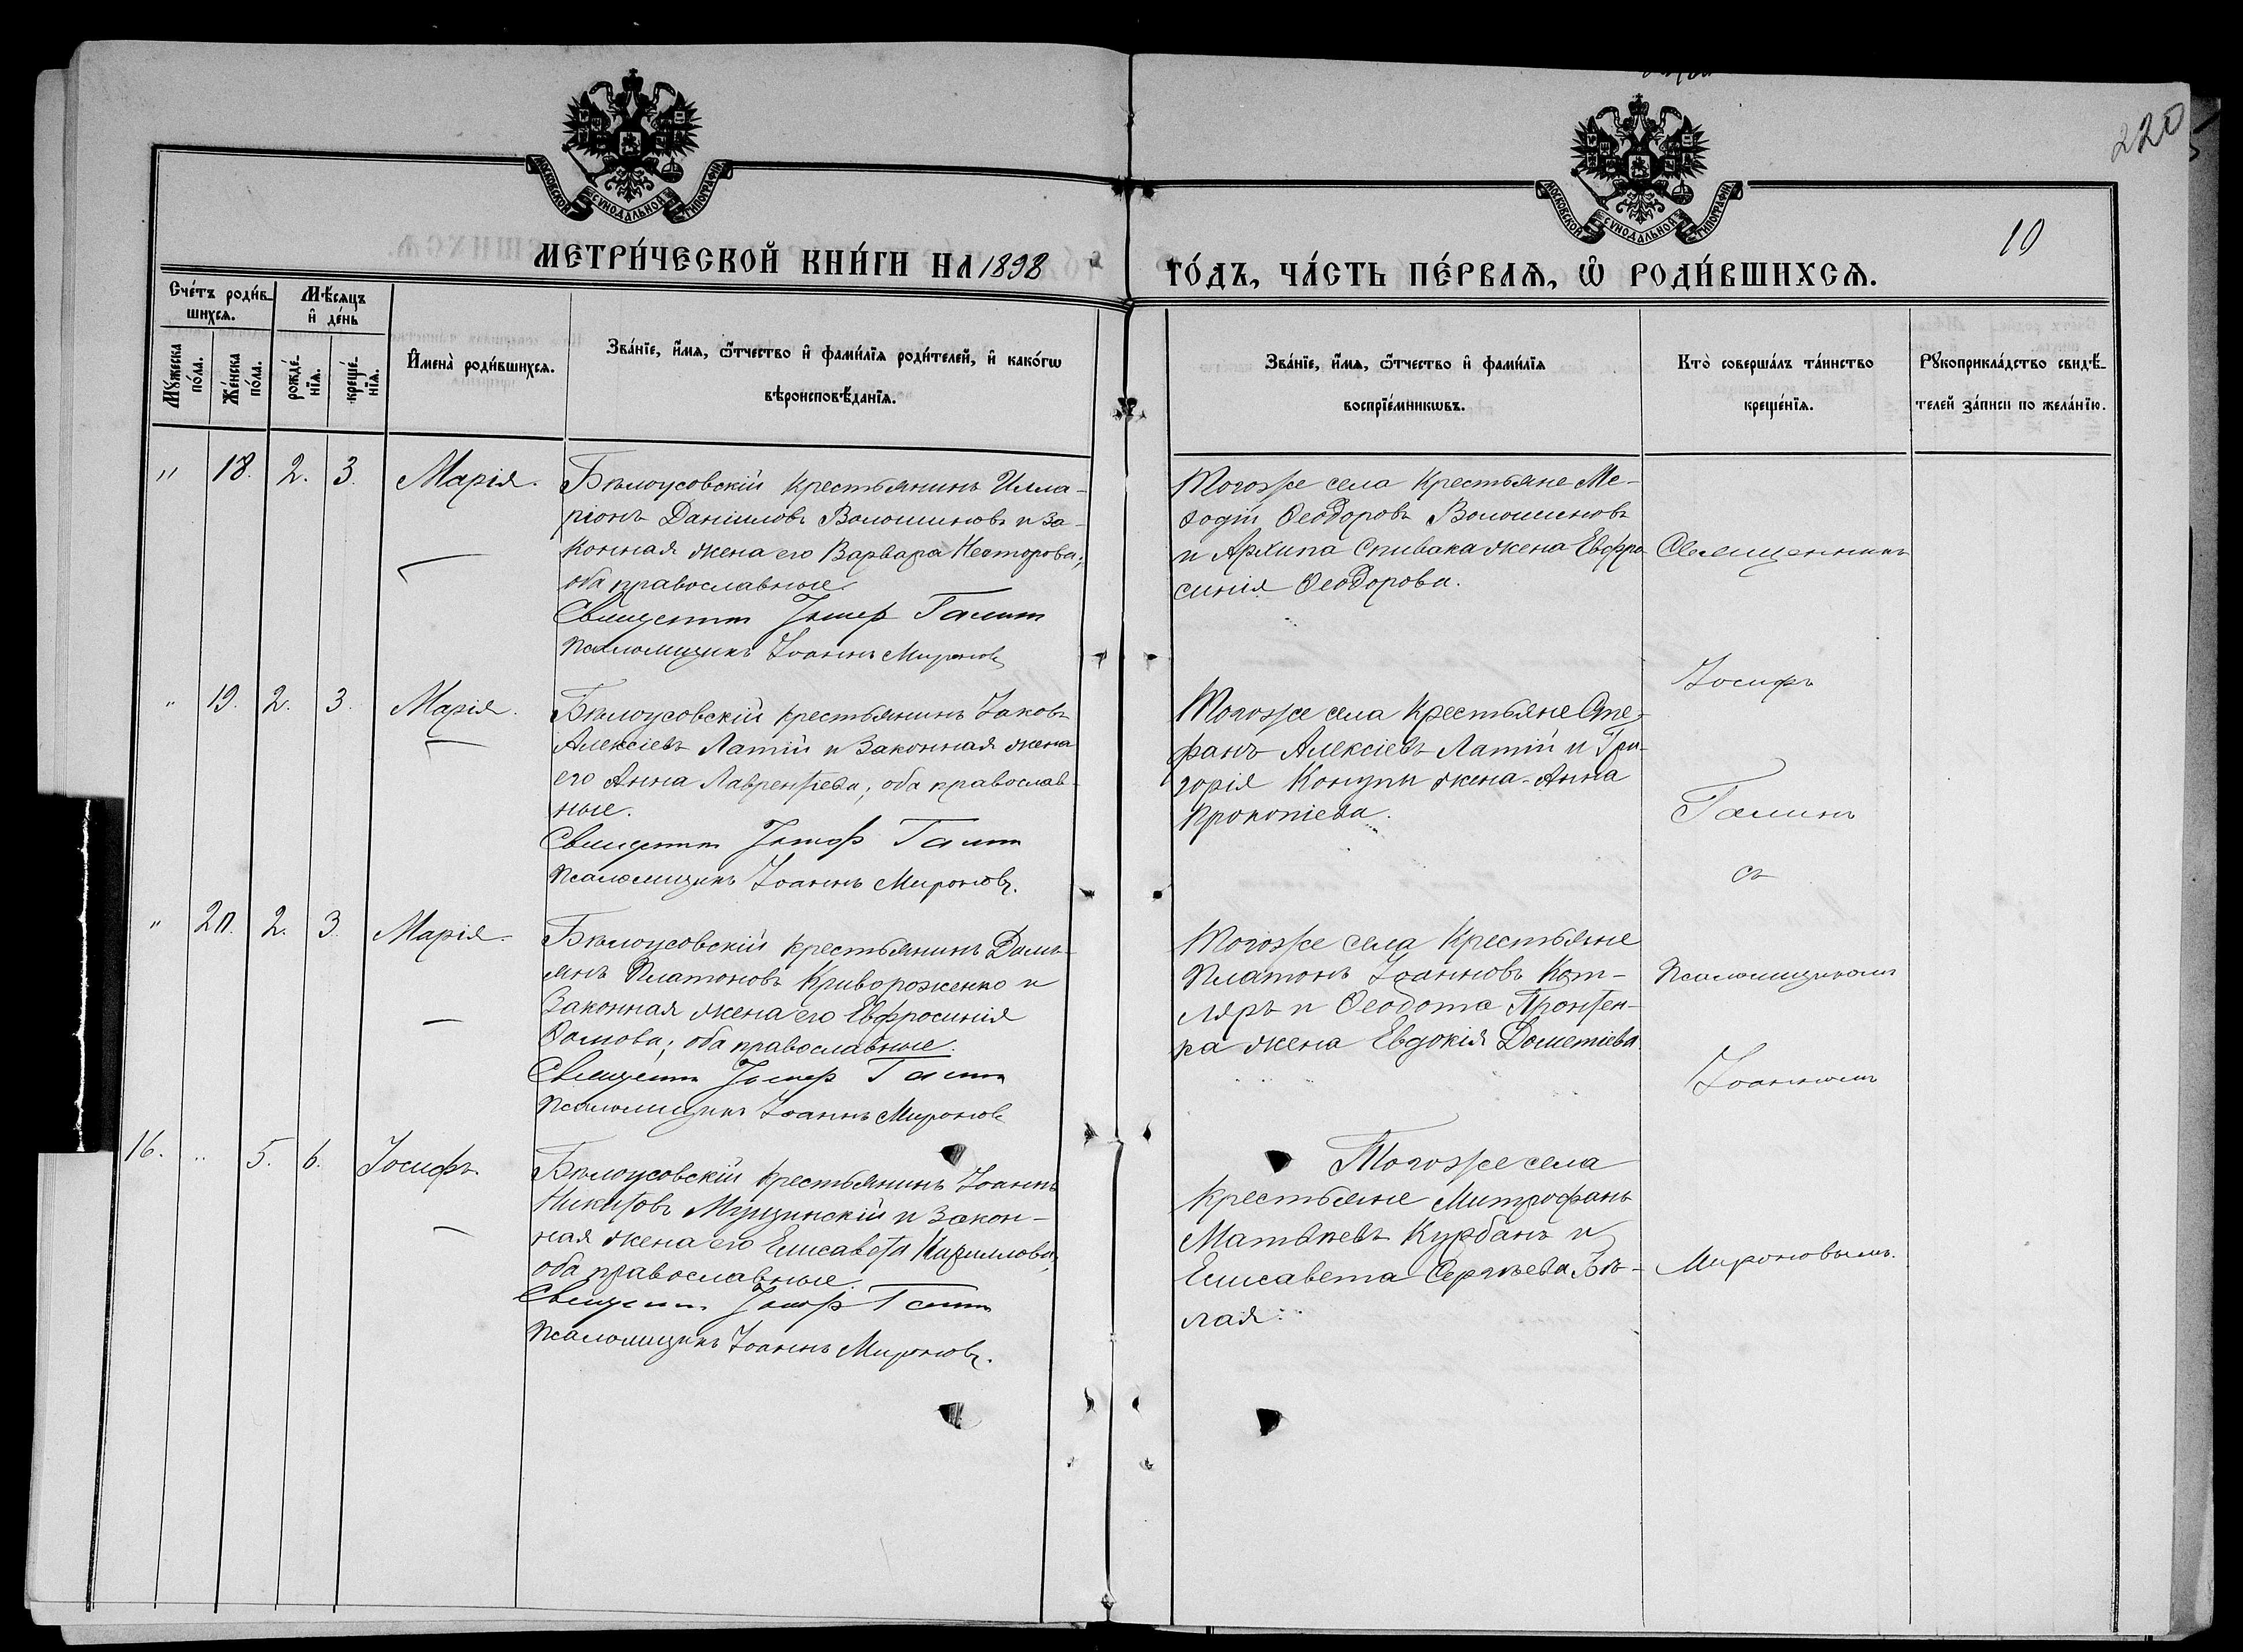 220
10
МОСКОВСКОЙ СѴНОДАЛЬНОЙ ТИПОГРАФІИ
МОСКОВСКОЙ СѴНОДАЛЬНОЙ ТИПОГРАФІИ
МЕТРИ́ЧЕСКОЙ КНИ́ГИ НА 1898
ГО́ДЪ, ЧА́СТЬ ПЕ́РВАЯ, Ѿ РОДИ́ВШИХСѦ.
Сче́тъ роди́в-
шихсѧ.
Мꙋ́жеска по́ла.
Же́нска по́ла.
Мѣ́сѧцъ
и҆ де́нь
рожде́нїѧ.
креще́нїѧ.
И҆мена̀ роди́вшихсѧ.
Зва́нїе, и҆́мѧ, ѻ҆́тчество и҆ фами́лїѧ роди́телей, и҆ како́гѡ
вѣроисповѣ́данїѧ.
Зва́нїе, и҆́мѧ, ѻ҆́тчество и҆ фами́лїѧ
воспрїе́мникѡвъ.
Кто̀ соверша́лъ та́инство
креще́нїѧ.
Рꙋкоприкла́дство свидѣ́-
телей за́писи по жела́нїю.
" 18. 2. 3. Марія.
Бѣлоусовскій крестьянинъ Илла-
ріонъ Даніиловъ Волошиновъ и за-
конная жена его Варвара Несторова;
оба православные.
Священникъ Іосифъ Галинъ
Псаломщикъ Іоаннъ Мироновъ
Тогоже села крестьяне Ме-
ѳодій Ѳеодоровъ Волошиновъ
и Архипа Спивака жена Евфро-
синія Ѳеодорова.
" 19. 2. 3. Марія.
Бѣлоусовскій крестьянинъ Іаковъ
Алексіевъ Латій и законная жена
его Анна Лаврентіева; оба православ-
ные.
Священникъ Іосифъ Галинъ
Псаломщикъ Іоаннъ Мироновъ.
Тогоже села крестьяне Сте-
фанъ Алексіевъ Латій и Гри-
горія Концупы жена Анна
Прокопіева.
" 20. 2. 3. Марія.
Бѣлоусовскій крестьянинъ Дамі-
янъ Платоновъ Кривороженко и
законная жена его Евфросинія
Ѳомова; оба православные.
Священникъ Іосифъ Галинъ
Псаломщикъ Іоаннъ Мироновъ
Тогоже села крестьяне
Платонъ Іоанновъ Кот-
ляръ и Ѳеодота
жена Евдокія Дометіева.
16. " 5. 6. Іосифъ.
Бѣлоусовскій крестьянинъ Іоаннъ
Никитовъ Мущинскій и закон-
ная жена его Елисавета Кириллова;
оба православные.
Священникъ Іосифъ Галинъ
Псаломщикъ Іоаннъ Мироновъ.
Тогоже села
крестьяне Митрофанъ
Матвѣевъ Курбанъ и
Елисавета Сергѣева Бѣ-
лая.
Священникъ
Іосифъ
Галинъ
съ
Псаломщикомъ
Іоанномъ
Мироновымъ.